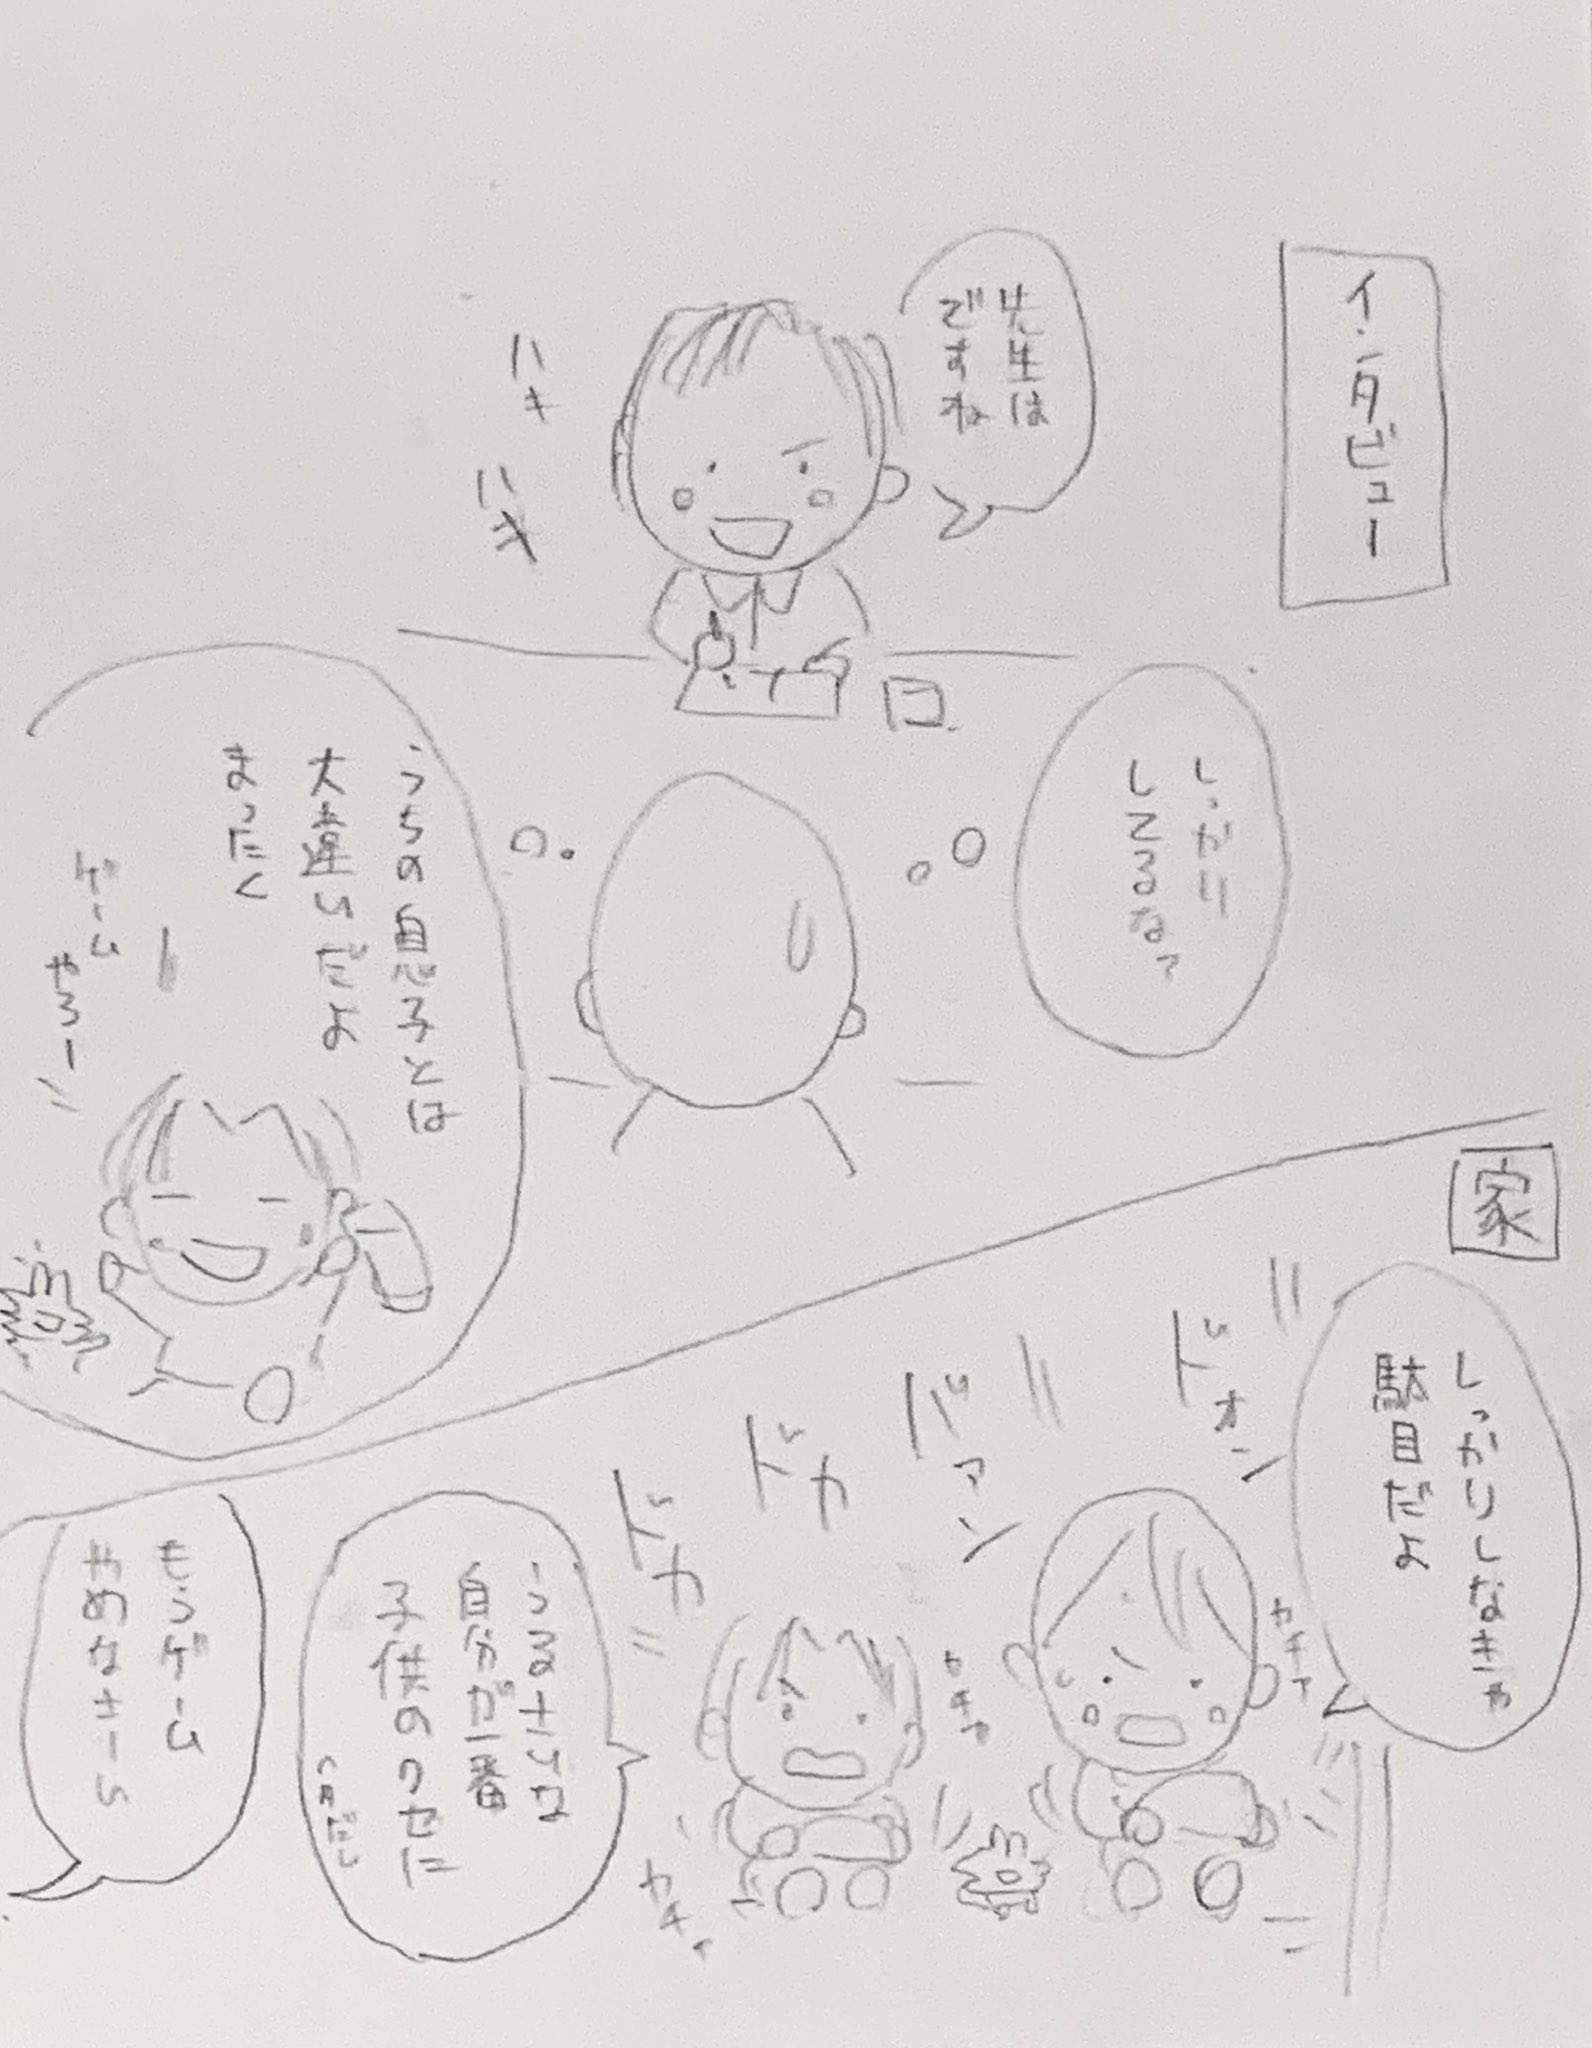 インタビュー
先生は
ですね
ハキ
ハキ
しっかり
してるなァ
うちの息子とは
大違いだよ
まったく
ゲーム
やろー
家
しっかりしなきゃ
駄目だよ
ドォン
バァン
ドカ
ドカ
カチャ
カチャ
カチャ
うるさいな
自分が一番
子供のクセに
もうゲーム
やめなさーい